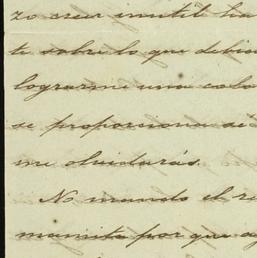 zo creer inutil ha
te sobre lo que debia
lograrme una colo
se proporciona ai
me olvidarás.
No mando el re
mamita por que ay